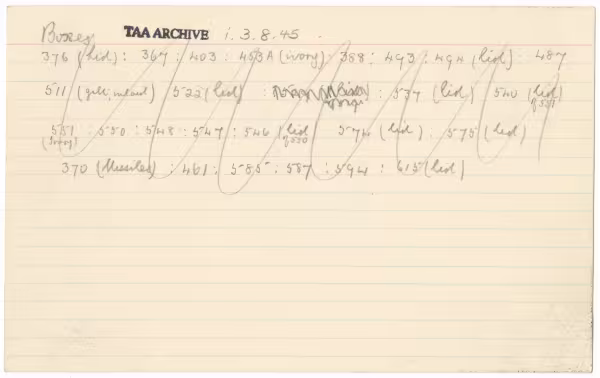 Boxes TAA ARCHIVE i. 3. 8. 45.
376 (lid) : 367 : 403 : 453A (ivory) 388 : 493 : 494 (lid) : 487
511 (gilt, inlaid) 522 (lid) : : 537 (lid) 540 (lid) of 551
551 (Ivory) : 550 : 548 : 547 : 546 (lid) of 550 574 (lid) : 575 (lid)
370 (Missiles) : 461 : 585 : 587 : 594 : 615 (lid)